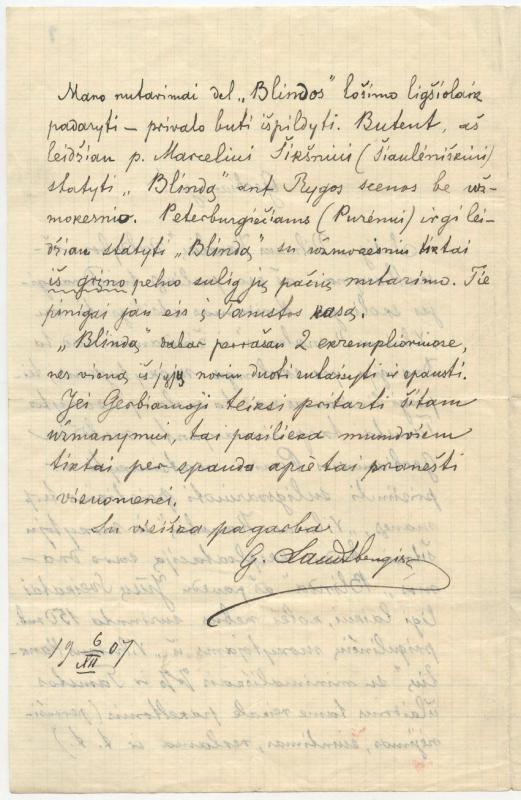 Mano nutarimai del „Blindos" lošimo ligšiolaik
padaryti – privalo buti išpildyti. Butent, aš
leidžiau p. Marcelini Šikšniui (Šiauléniškiui)
statyti „Blindą" ant Rygos scenos be už-
mokesnio. Peterburgiečiams (Purénui) irgi lei-
džiau statyti „Blindą" su užmocesniu tiktai
iš grino pelno sulig jų pačių nutarimo. Tie
pinigai jau eis į Tamstos kasą.
„Blindą" dabar perrašau 2 exemplioriuose,
nes vieną iš jųjų noriu duoti sutaisyti ir spausti.
Jei Gerbiamoji teiksi pritarti šitam
užmanymui, tai pasilieka mumdviem
tiktai per spaudą apie tai pranešti
visuomenei.
Su viešža pagarba
G. Landsbergis
19 6/XII 07